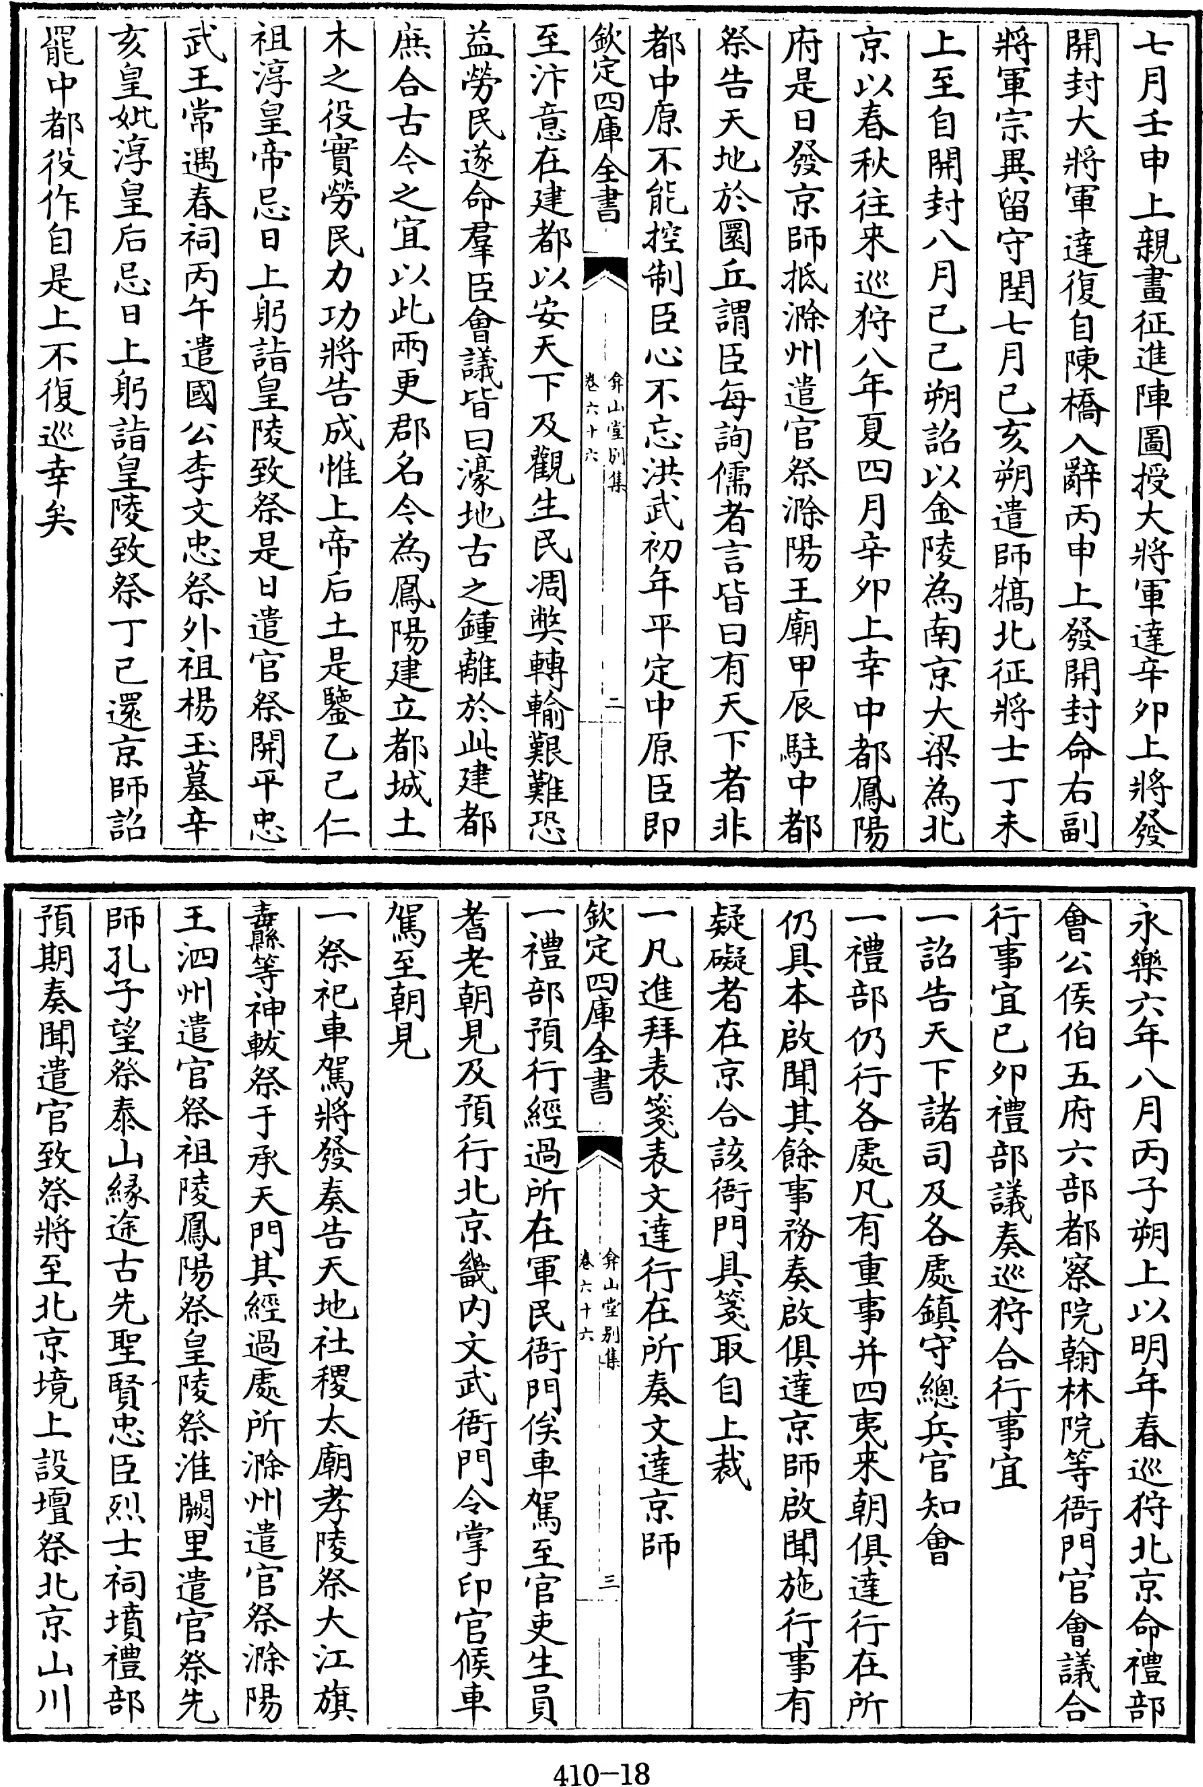 七月壬申上親畫征進陣圖授大將軍達辛卯上將發
開封大將軍達復自陳橋入辭丙申上發開封命右副
將軍宗異留守閏七月已亥朔遣師犒北征將士丁未
上至自開封八月己己朔詔以金陵為南京大梁為北
京以春秋往來巡狩八年夏四月辛卯上幸中都鳳陽
府是日發京師抵滁州遣官祭滁陽王廟甲辰駐中都
祭告天地於圜丘謂臣每詢儒者言皆曰有天下者非
都中原不能控制臣心不忘洪武初年平定中原臣即
欽定四庫全書
弇山堂別集
卷六十六
二
至汴意在建都以安天下及觀生民凋弊轉輸艱難恐
益勞民遂命羣臣會議皆曰濠地古之鍾離於此建都
庶合古今之宜以此兩更郡名今為鳳陽建立都城土
木之役實勞民力功將告成惟上帝后土是鑒乙己仁
祖淳皇帝忌日上躬詣皇陵致祭是日遣官祭開平忠
武王常遇春祠丙午遣國公李文忠祭外祖楊王墓辛
亥皇妣淳皇后忌日上躬詣皇陵致祭丁已還京師詔
罷中都役作自是上不復巡幸矣
永樂六年八月丙子朔上以明年春巡狩北京命禮部
會公侯伯五府六部都察院翰林院等衙門官會議合
行事宜已卯禮部議奏巡狩合行事宜
一詔告天下諸司及各處鎮守總兵官知會
一禮部仍行各處凡有重事并四夷來朝俱達行在所
仍具本啟聞其餘事務奏啟俱達京師啟聞施行事有
疑礙者在京合該衙門具箋取自上裁
一凡進拜表箋表文達行在所奏文達京師
欽定四庫全書
弇山堂別集
卷六十六
三
一禮部預行經過所在軍民衙門俟車駕至官吏生員
耆老朝見及預行北京畿内文武衙門令掌印官候車
駕至朝見
一祭祀車駕將發奏告天地社稷太廟孝陵祭大江旗
纛等神軷祭于承天門其經過處所滁州遣官祭滁陽
王泗州遣官祭祖陵鳳陽祭皇陵祭淮闕里遣官祭先
師孔子望祭泰山緣途古先聖賢忠臣烈士祠墳禮部
預期奏聞遣官致祭將至北京境上設壇祭北京山川
410-18